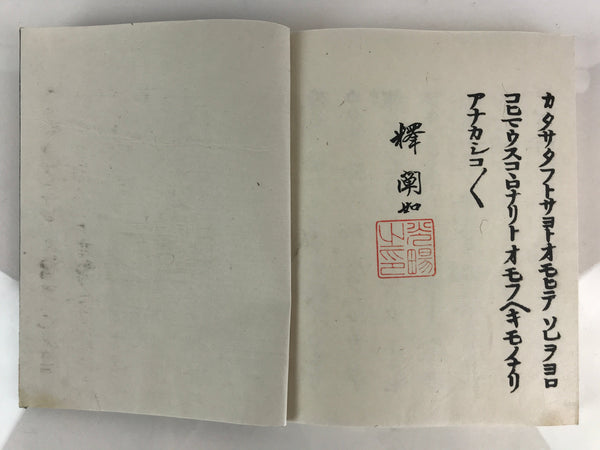 カタサタフトサヨトオモヒテソレヲヨロ
コヒマウスコヽロナリトオモフヘキモノナリ
アナカシコ〱
釋闡如
光暢之印